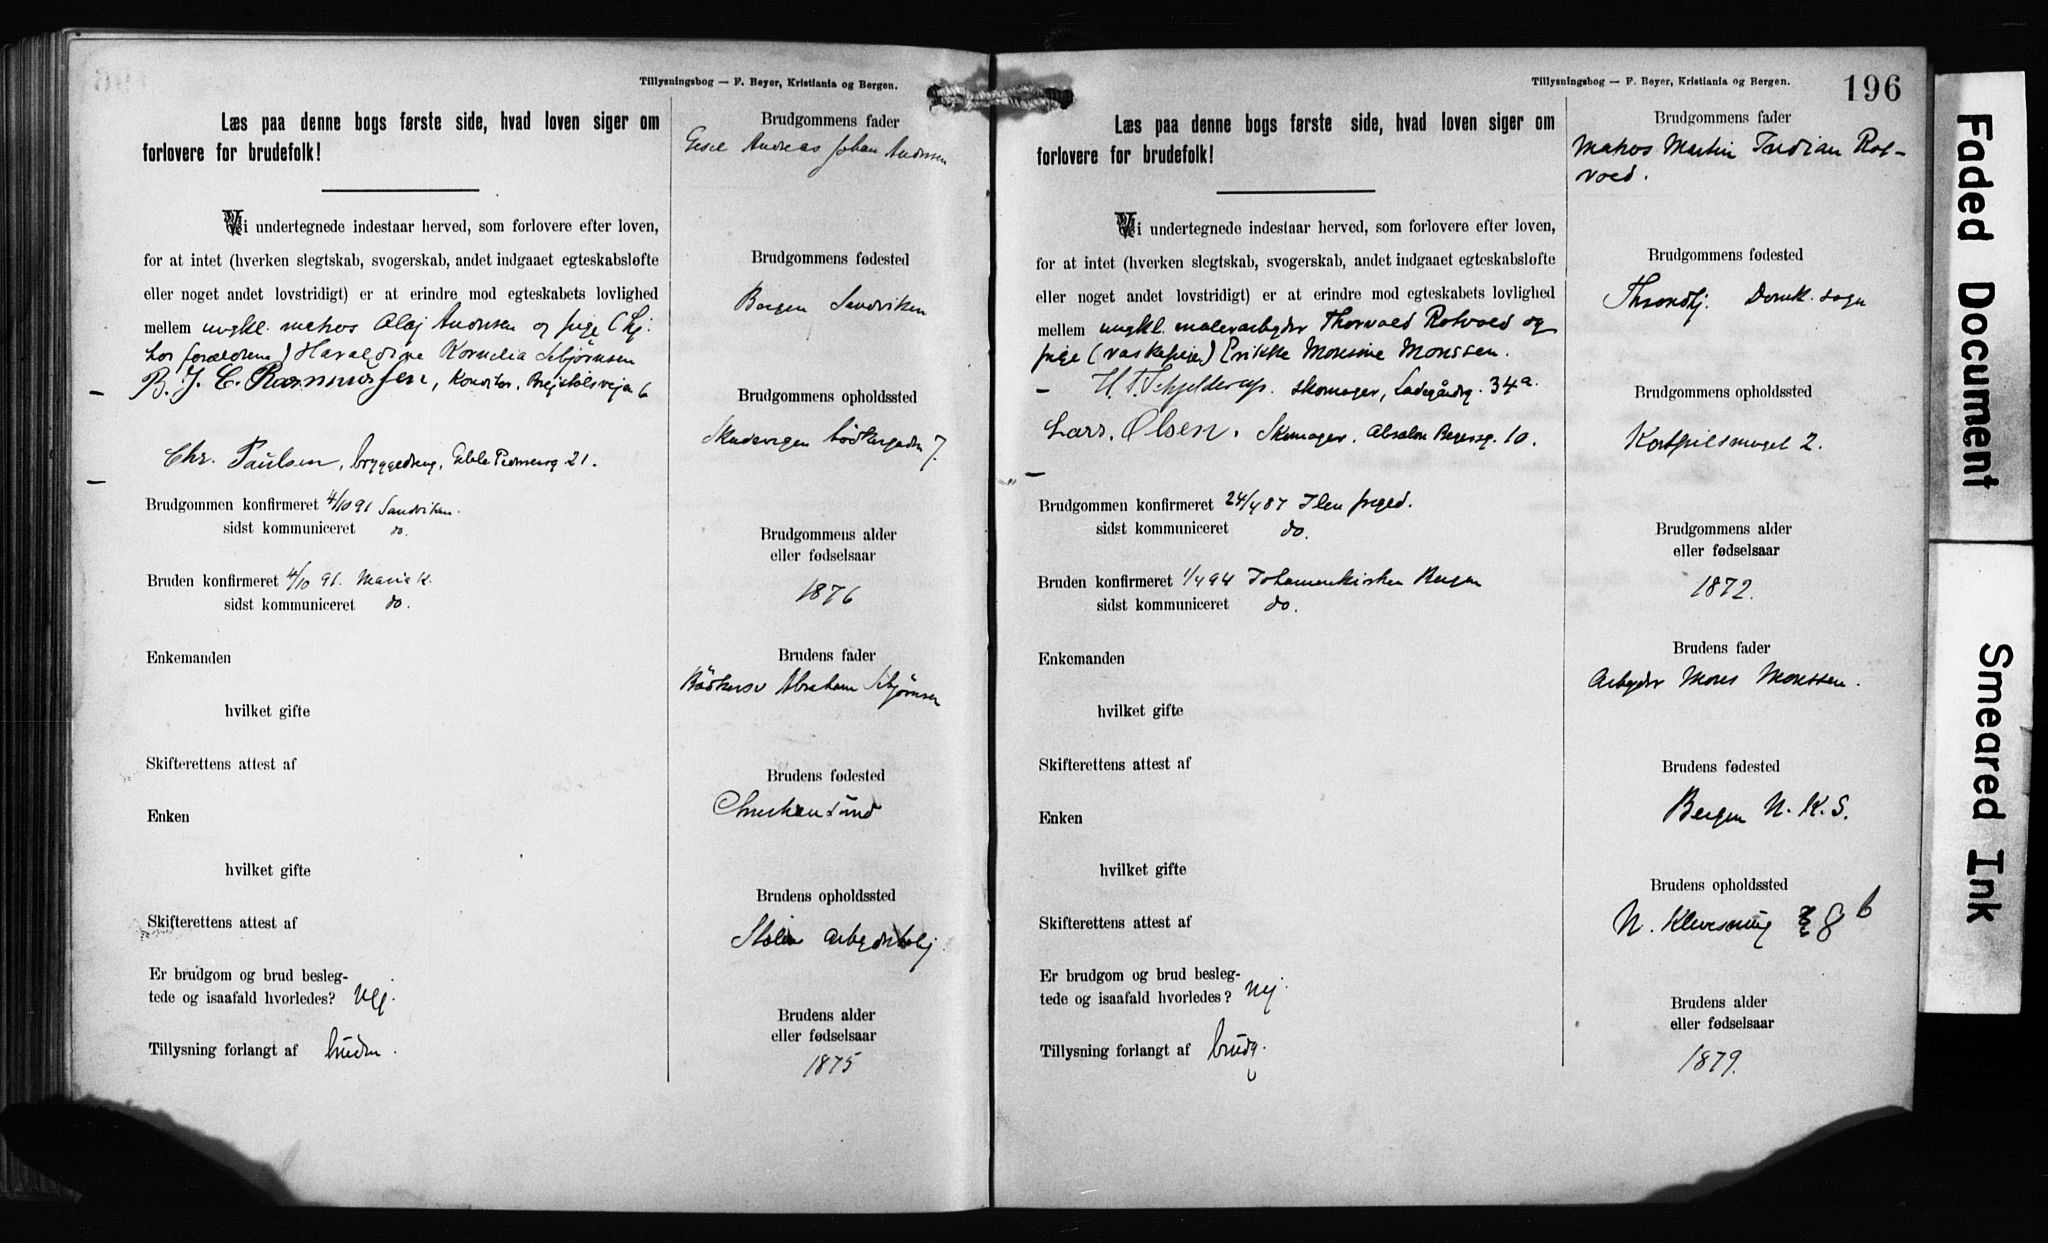 Tillysningsbog — F. Beyer, Kristiania og Bergen.
Læs paa denne bogs første side, hvad loven siger om
forlovere for brudefolk!
Vi undertegnede indestaar herved, som forlovere efter loven,
for at intet (hverken slegtskab, svogerskab, andet indgaaet egteskabsløfte
eller noget andet lovstridigt) er at erindre mod egteskabets lovlighed
mellem ungkl. matros Olaf Andersen og pige (hj.
hos forældrene) Haraldine Kornelia Isbjørnsen
B. J. C. Rasmussen, Konditor, 6
Chr. Paulsen, bryggedreng, 21.
Brudgommen konfirmeret 4/10 91 Sandviken.
sidst kommuniceret do.
Bruden konfirmeret 4/10 91. Maria K.
sidst kommuniceret do.
Enkemanden
hvilket gifte
Skifterettens attest af
Enken
hvilket gifte
Skifterettens attest af
Er brudgom og brud besleg-
tede og isaafald hvorledes? Nej.
Tillysning forlangt af bruden.
Brudgommens fader
Andreas Johan Andersen
Brudgommens fødested
Bergen Sandviken
Brudgommens opholdssted
Skudevigen 7.
Brudgommens alder
eller fødselsaar
1876
Brudens fader
Bødkersv Abraham Isbjørnsen
Brudens fødested
Christiansund
Brudens opholdssted
Stølen arbeiderbolig
Brudens alder
eller fødselsaar
1875
Tillysningsbog — F. Beyer, Kristiania og Bergen.
196
Læs paa denne bogs første side, hvad loven siger om
forlovere for brudefolk!
Vi undertegnede indestaar herved, som forlovere efter loven,
for at intet (hverken slegtskab, svogerskab, andet indgaaet egteskabsløfte
eller noget andet lovstridigt) er at erindre mod egteskabets lovlighed
mellem ungkl. malerarbeider Thorvald Rotvold og
pige (vaskepige) Erikke Monsine Monssen.
H. T. Schjelderup. skomager, Ladegårdsg. 34a.
Lars. Olsen. Skomager. Absalon Beyersg. 10.
Brudgommen konfirmeret 24/4 87 Ilen
sidst kommuniceret do.
Bruden konfirmeret 1/4 94 Johanneskirken Bergen
sidst kommuniceret do.
Enkemanden
hvilket gifte
Skifterettens attest af
Enken
hvilket gifte
Skifterettens attest af
Er brudgom og brud besleg-
tede og isaafald hvorledes? Nej
Tillysning forlangt af brudg.
Brudgommens fader
Matros Martin Indian Rot-
vold.
Brudgommens fødested
Throndhj. Domk. sogn
Brudgommens opholdssted
Kortpilsmuget 2.
Brudgommens alder
eller fødselsaar
1872.
Brudens fader
Arbeider Mons Monssen.
Brudens fødested
Bergen N. K. S.
Brudens opholdssted
N. Kleivesmug 8 b
Brudens alder
eller fødselsaar
1879.
Faded Document
Smeared Ink